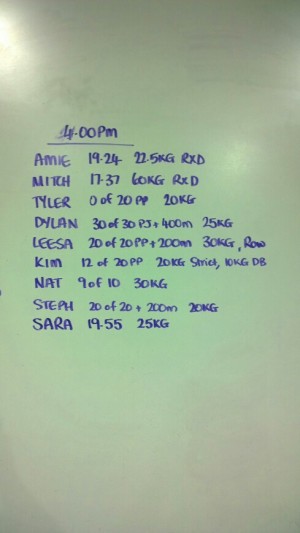 4.00pm
AMIE 19.24 22.5KG RXD
MITCH 17.37 60KG RXD
TYLER 0 of 20 PP 20KG
DYLAN 30 of 30 PJ + 400m 25KG
LEESA 20 of 20 PP + 200m 30KG, Row
KIM 12 of 20 PP 20KG Strict, 10KG DB
NAT 9 of 10 30KG
STEPH 20 of 20 + 200m 20KG
SARA 19.55 25KG